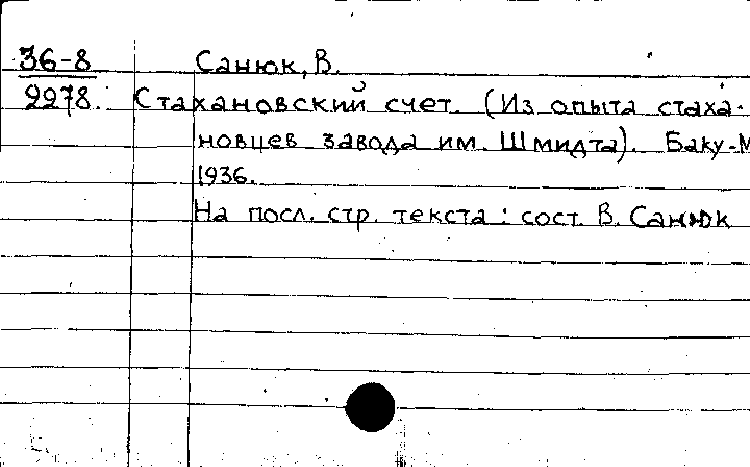 36-8 Санюк, В.
2278. Стахановский счет. (Из опыта стаха-
новцев завода им. Шмидта). Баку-М
1936.
На посл. стр. текста: сост. В. Санюк